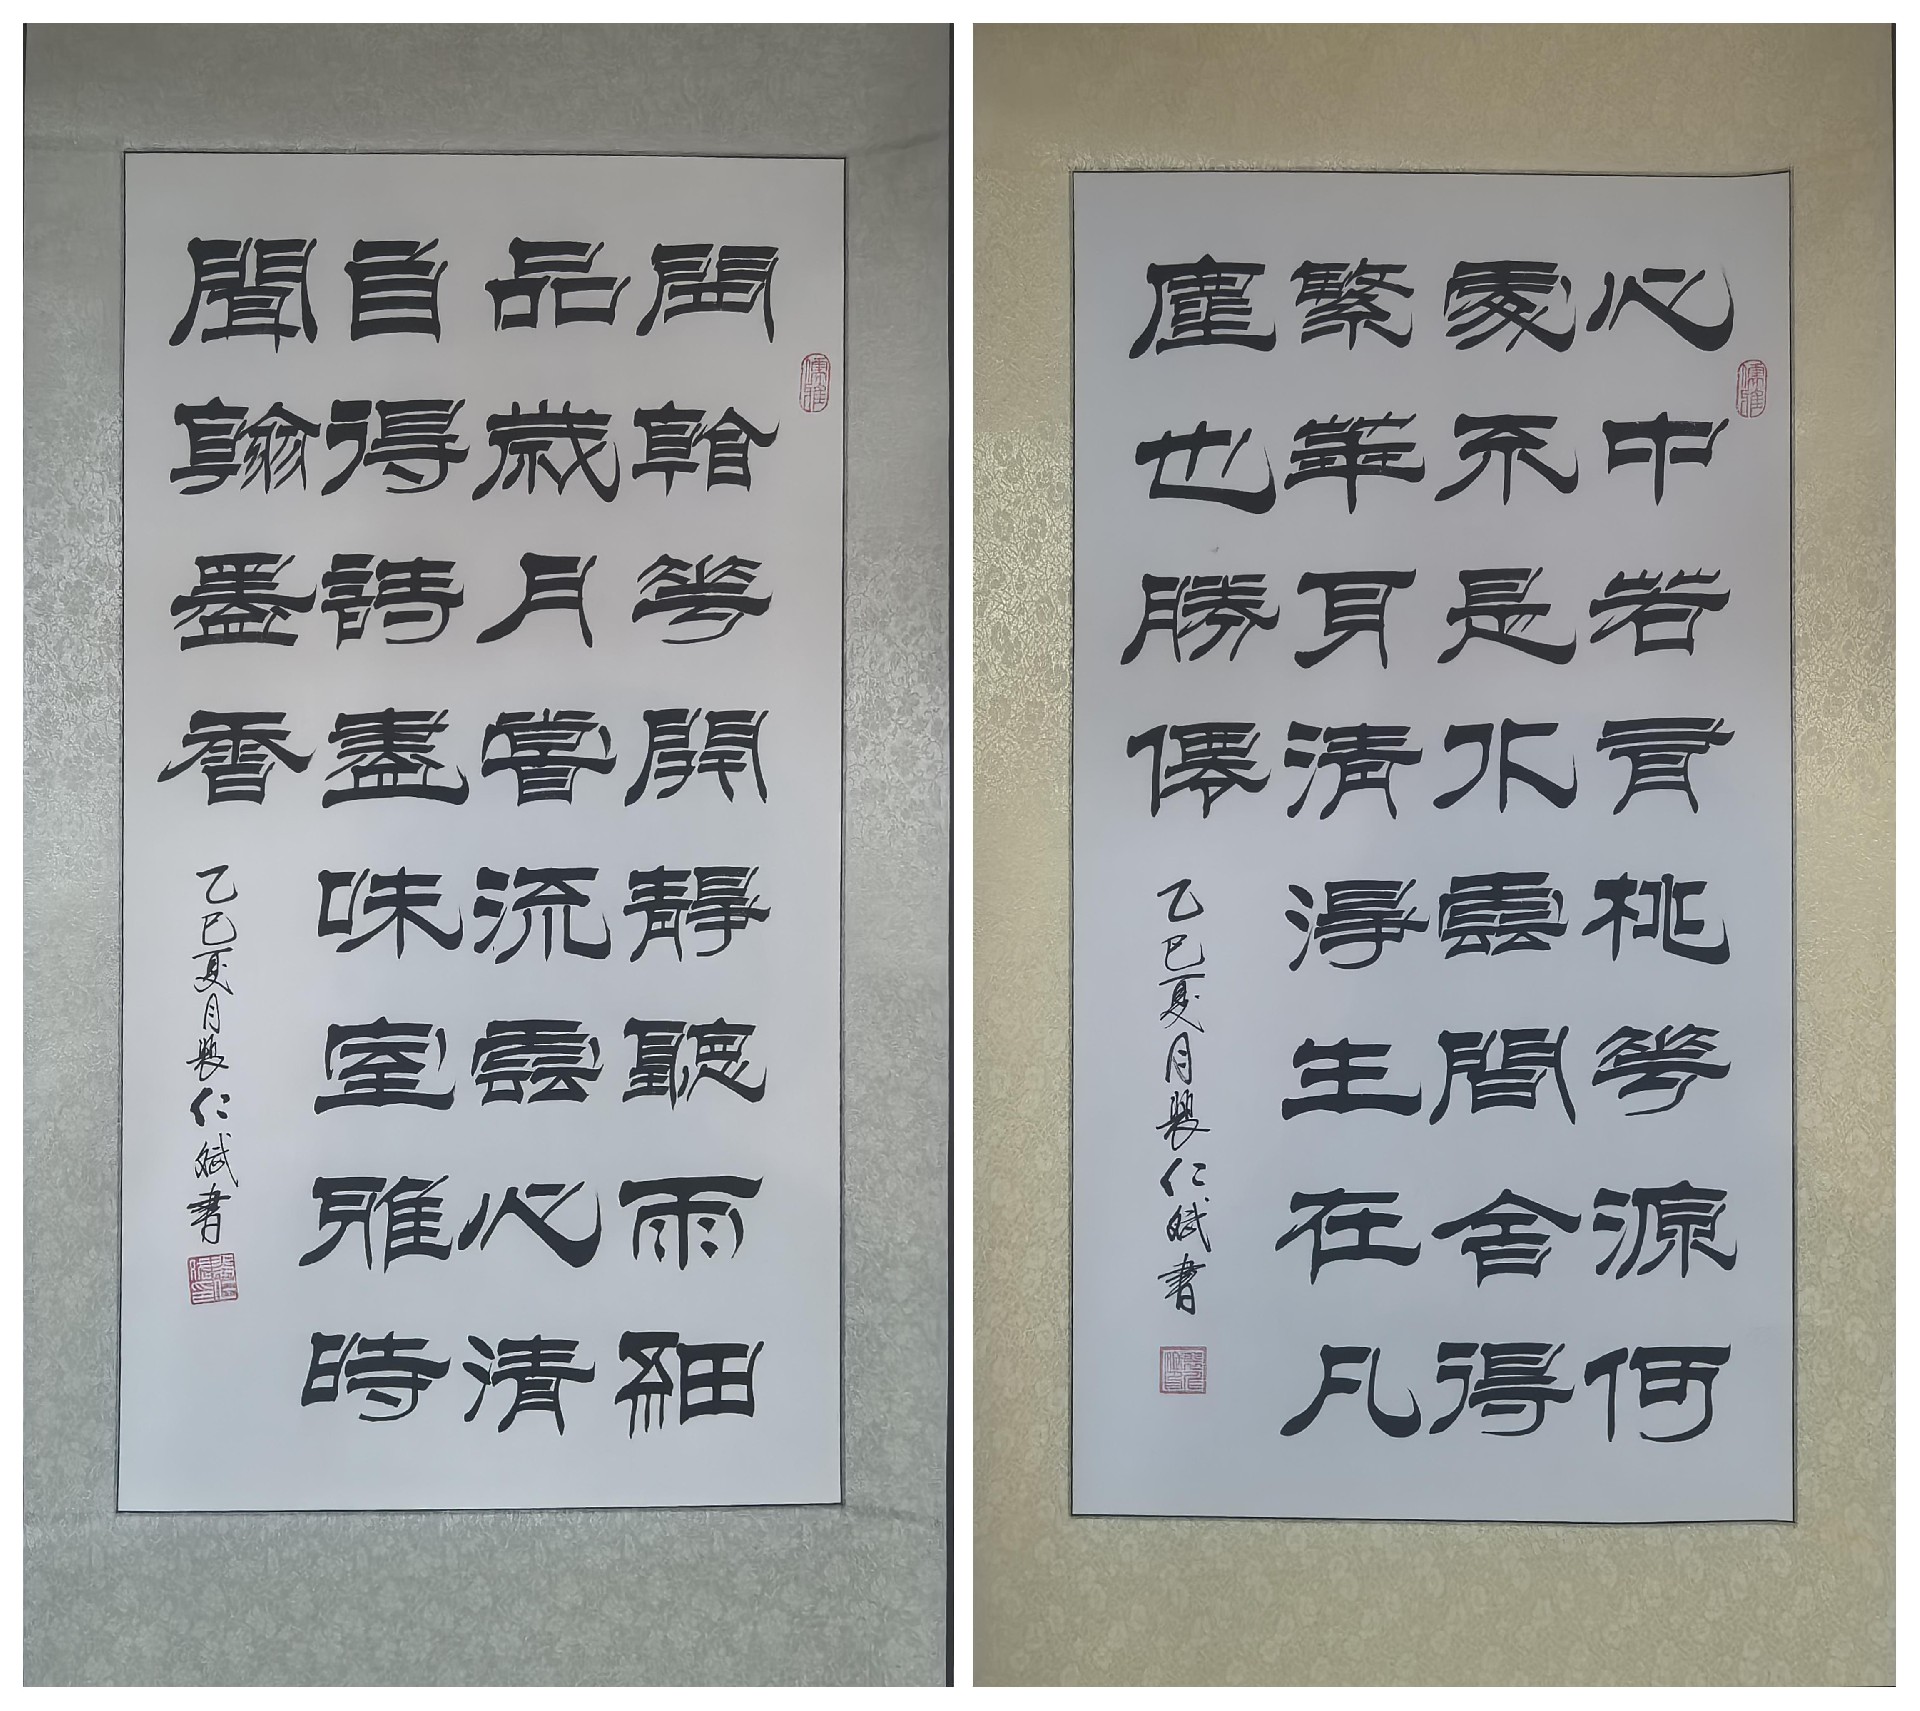 儒雅
閒看花開靜聽雨細
品歲月嘗流雲心清
自得詩盡味室雅時
聞翰墨香
乙巳夏月仁斌書
儒雅
心中若有桃花源何
處不是水雲間舍得
繁華耳清淨生在凡
塵也勝僊
乙巳夏月仁斌書